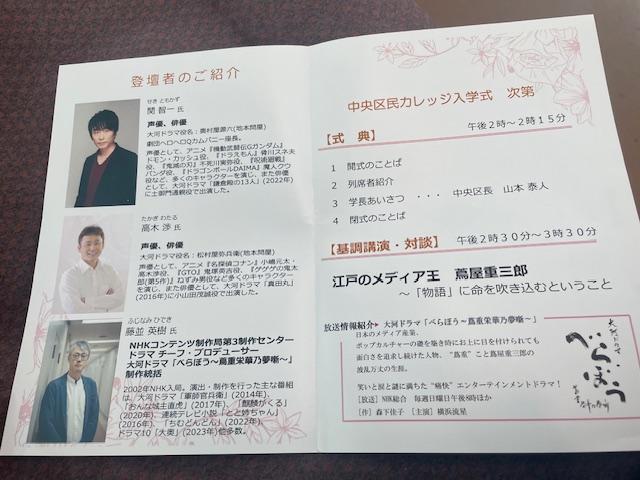 登壇者のご紹介
せき ともかず
関 智一 氏
声優、俳優
大河ドラマ役名：奥村屋源六(地本問屋)
劇団ヘロヘロQカムパニー座長。
声優として、アニメ『機動武闘伝Gガンダム』
ドモン・カッシュ役、『ドラえもん』骨川スネ夫
役、『鬼滅の刃』不死川実弥役、『呪術廻戦』
パンダ役、『ドラゴンボールDAIMA』魔人クウ
役など、多くのキャラクターを演じ、また俳優
として、大河ドラマ「鎌倉殿の13人」(2022年)
に土御門通親役で出演した。
たかぎ わたる
高木 渉 氏
声優、俳優
大河ドラマ役名：松村屋弥兵衛(地本問屋)
声優として、アニメ『名探偵コナン』小嶋元太・
高木渉役、『GTO』鬼塚英吉役、『ゲゲゲの鬼太
郎(第5作)』ねずみ男役など多くのキャラクター
を演じ、また俳優として、大河ドラマ「真田丸」
(2016年)に小山田茂誠役で出演した。
ふじなみ ひでき
藤並 英樹 氏
NHKコンテンツ制作局第3制作センター
ドラマ チーフ・プロデューサー
大河ドラマ「べらぼう～蔦重栄華乃夢噺～」
制作統括
2002年NHK入局。演出・制作を行った主な番組
は、大河ドラマ「軍師官兵衛」(2014年)、
「おんな城主直虎」(2017年)、「麒麟がくる」
(2020年)、連続テレビ小説「とと姉ちゃん」
(2016年)、「ちむどんどん」(2022年)、
ドラマ10「大奥」(2023年)他多数。
中央区民カレッジ入学式 次第
【式 典】 午後２時～２時１５分
1 開式のことば
2 列席者紹介
3 学長あいさつ ・・・ 中央区長 山本 泰人
4 閉式のことば
【基調講演・対談】 午後２時３０分～３時３０分
江戸のメディア王 蔦屋重三郎
～「物語」に命を吹き込むということ
放送情報紹介 大河ドラマ「べらぼう～蔦重栄華乃夢噺～」
日本のメディア産業、
ポップカルチャーの礎を築き時にお上に目を付けられても
面白さを追求し続けた人物、“蔦重”こと蔦屋重三郎の
波乱万丈の生涯。
笑いと涙と謎に満ちた“痛快”エンターテインメントドラマ！
[放送] NHK総合 毎週日曜日午後8時ほか
[作] 森下佳子 [主演] 横浜流星
大河ドラマ
べらぼう